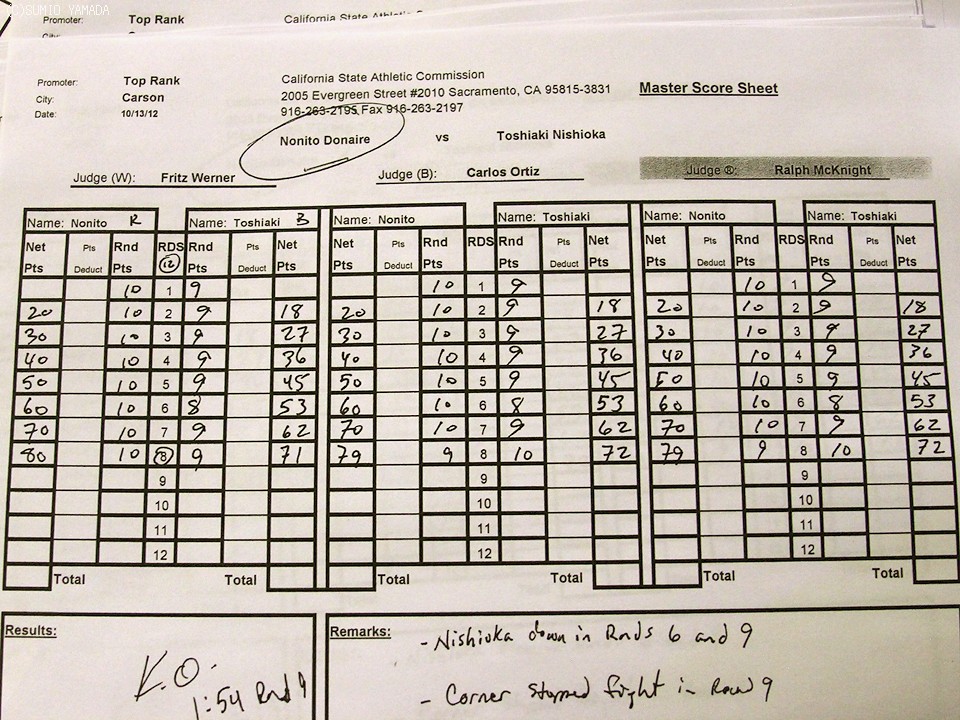 (C)SUMIO YAMADA
Promoter: Top Rank California State Athletic Commission
City:
Promoter: Top Rank California State Athletic Commission
City: Carson 2005 Evergreen Street #2010 Sacramento, CA 95815-3831 Master Score Sheet
Date: 10/13/12 916-263-2195 Fax 916-263-2197
Nonito Donaire vs Toshiaki Nishioka
Judge (W): Fritz Werner Judge (B): Carlos Ortiz Judge ®: Ralph McKnight
Name: Nonito R Name: Toshiaki B Name: Nonito Name: Toshiaki Name: Nonito Name: Toshiaki
Net Pts Rnd RDS Rnd Pts Net Net Pts Rnd RDS Rnd Pts Net Net Pts Rnd RDS Rnd Pts Net
Pts Deduct Pts 12 Pts Deduct Pts Pts Deduct Pts Pts Deduct Pts Pts Deduct Pts Pts Deduct Pts
10 1 9 10 1 9 10 1 9
20 10 2 9 18 20 10 2 9 18 20 10 2 9 18
30 10 3 9 27 30 10 3 9 27 30 10 3 9 27
40 10 4 9 36 40 10 4 9 36 40 10 4 9 36
50 10 5 9 45 50 10 5 9 45 50 10 5 9 45
60 10 6 8 53 60 10 6 8 53 60 10 6 8 53
70 10 7 9 62 70 10 7 9 62 70 10 7 9 62
80 10 8 9 71 79 9 8 10 72 79 9 8 10 72
9 9 9
10 10 10
11 11 11
12 12 12
Total Total Total Total Total Total
Results: Remarks:
- Nishioka down in Rnds 6 and 9
K.O.
1:54 Rnd 9
- Corner stopped fight in Round 9